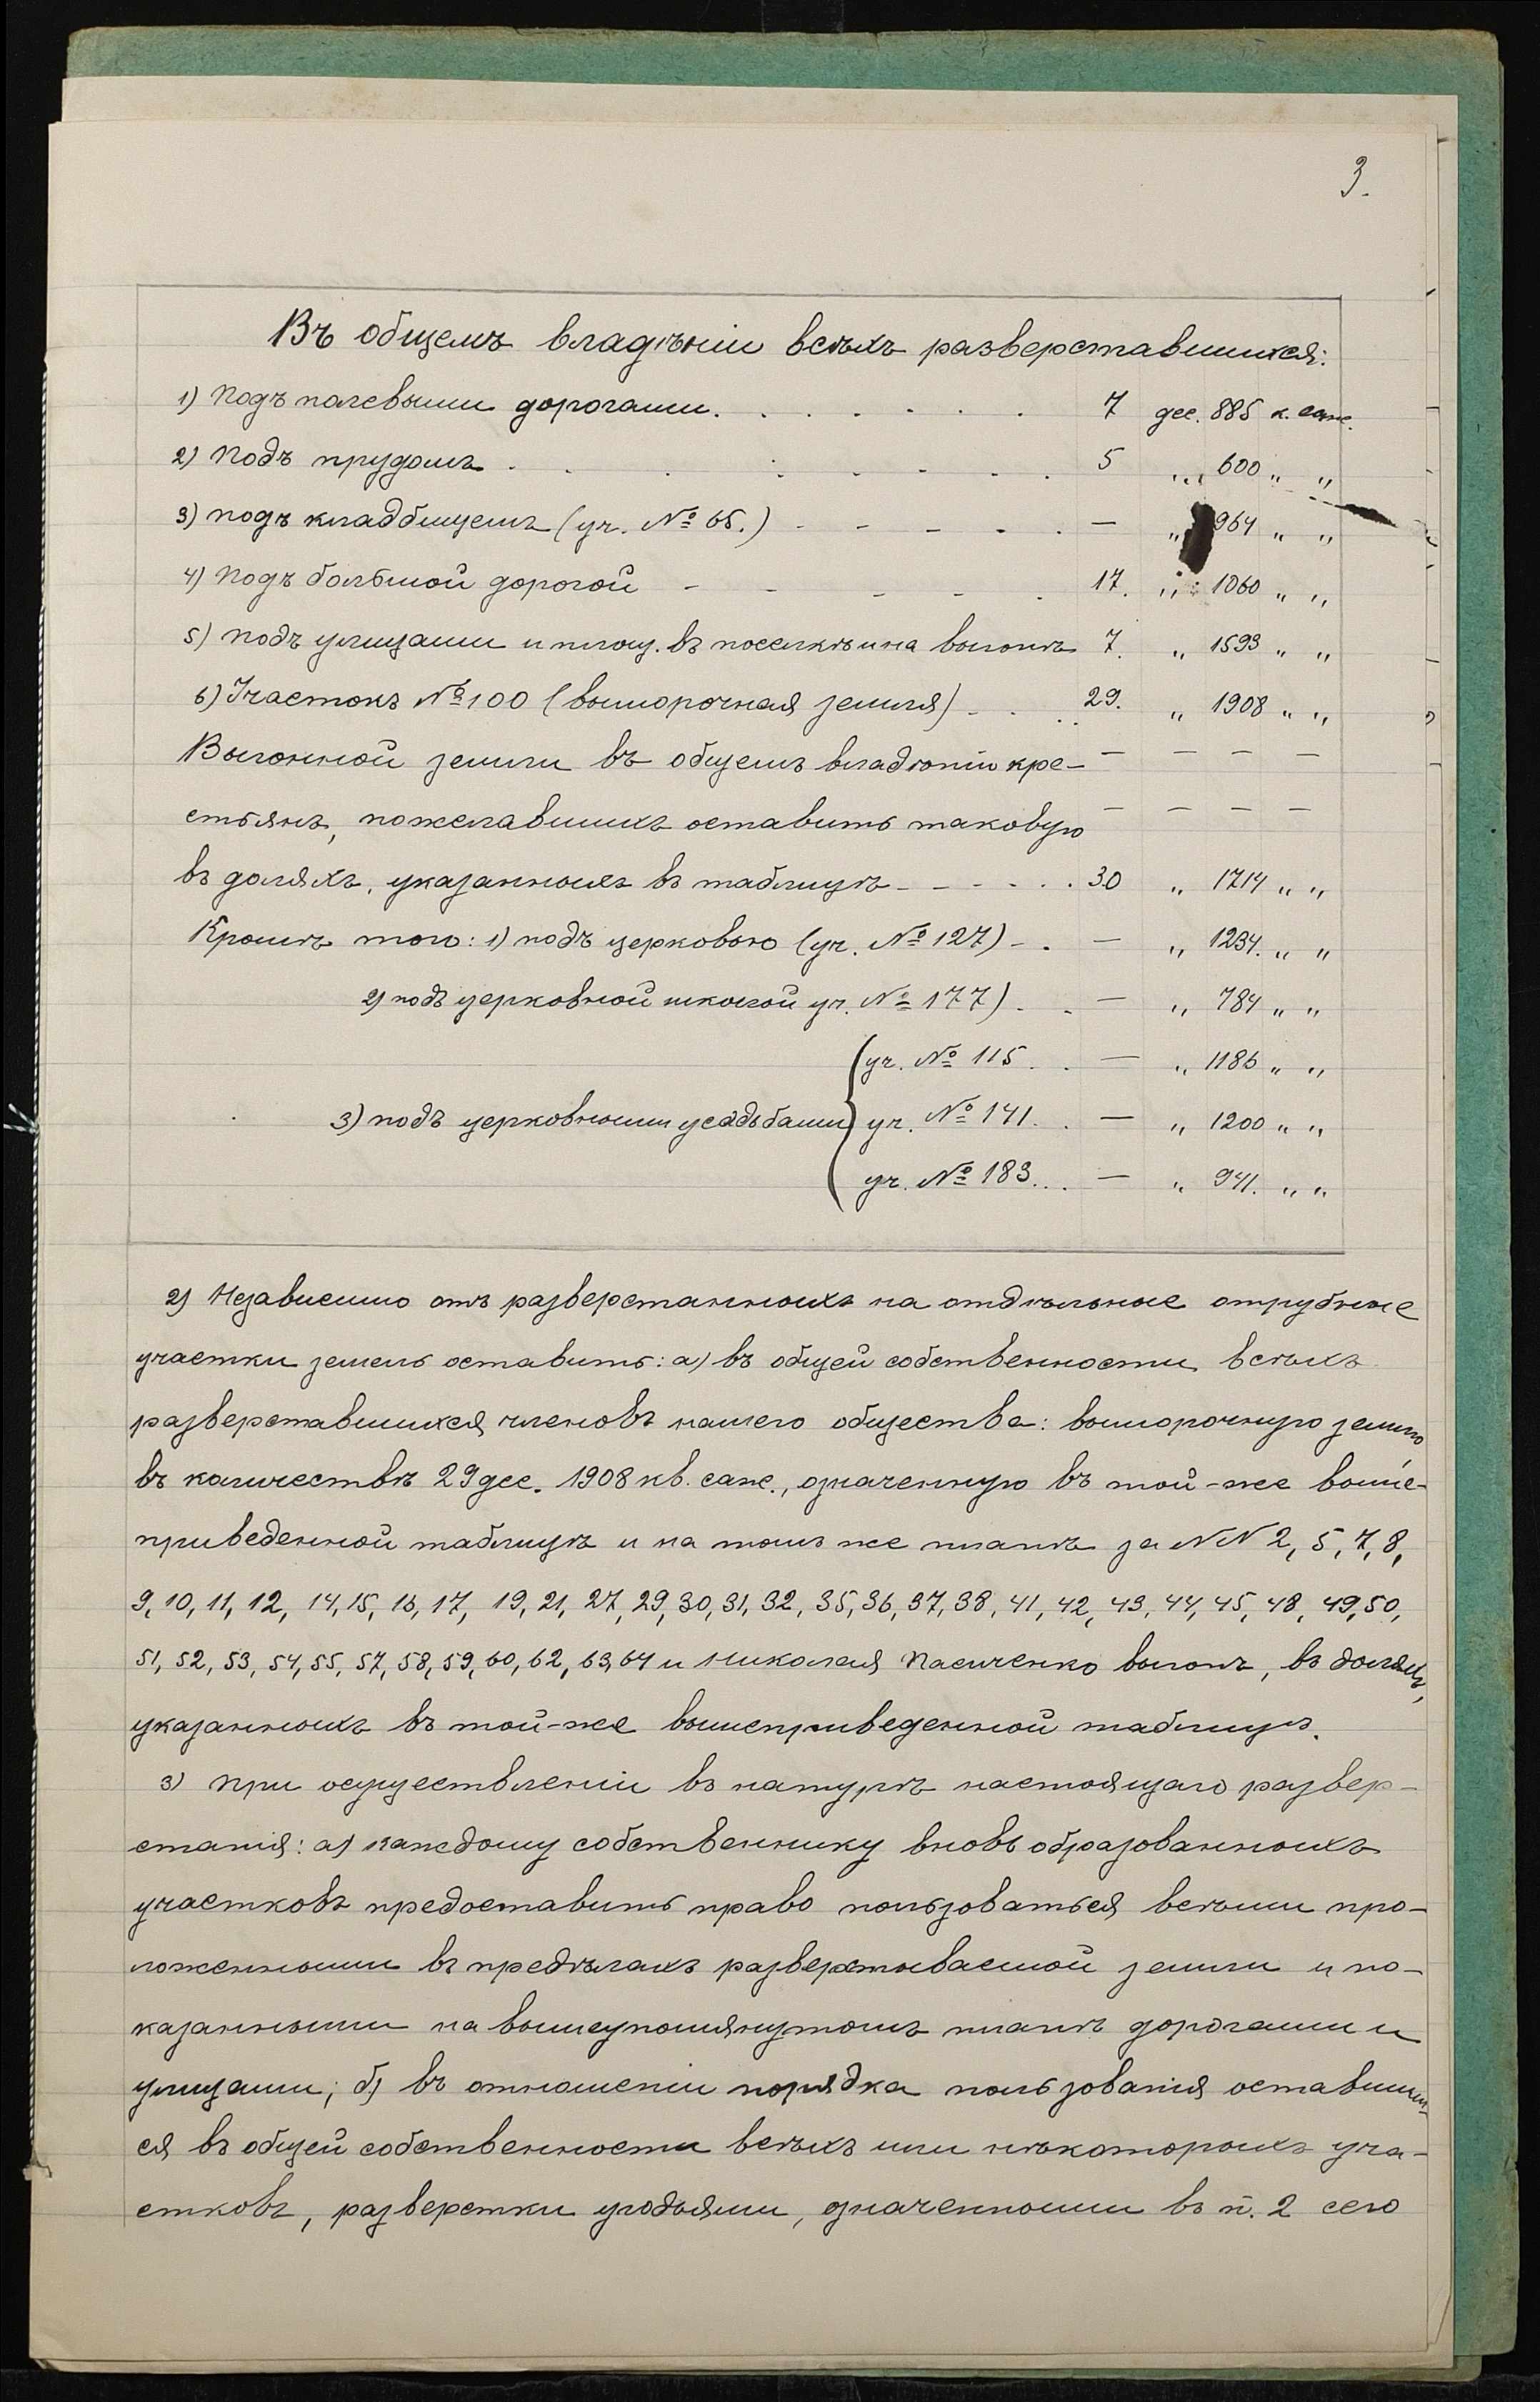 3.
Въ общемъ владѣніи всѣхъ разверставшихся:
1) Подъ полевыми дорогами. . . . . . . 7 дес. 885 к. саж.
2) Подъ прудомъ . . . . . . . . 5 „ 600 „ „
3) подъ кладбищемъ (уч. № 65.) - - - - . — „ 964 „ „
4) Подъ большой дорогой - - - - . 17. „ 1060 „ „
5) подъ улицами и площ. въ поселкѣ и на выгонѣ 7. „ 1593 „ „
6) Участокъ № 100 (выморочная земля) - . . 29. „ 1908 „ „
Выгонной земли въ общемъ владѣніи кре- — — — —
стьянъ, пожелавшихъ оставить таковую — — — —
въ доляхъ, указанныхъ въ таблицѣ - - - - . . . 30 „ 1714 „ „
Кромѣ того: 1) подъ церковью (уч. № 127) - . — „ 1234. „ „
2) подъ церковной школой уч. № 177) . . — „ 784 „ „
уч. № 115 . . — „ 1186 „ „
3) подъ церковными усадьбами уч. № 141. . — „ 1200 „ „
уч. № 183. . . — „ 941. „ „
2) Независимо отъ разверстанныхъ на отдѣльные отрубные
участки земель оставить: а) въ общей собственности всѣхъ
разверставшихся членовъ нашего общества: выморочную землю
въ количествѣ 29 дес. 1908 кв. саж., означенную въ той-же выше-
приведенной таблицѣ и на томъ же планѣ за NN 2, 5, 7, 8,
9, 10, 11, 12, 14, 15, 16, 17, 19, 21, 27, 29, 30, 31, 32, 35, 36, 37, 38, 41, 42, 43, 44, 45, 48, 49, 50,
51, 52, 53, 54, 55, 57, 58, 59, 60, 62, 63, 64 и Николая Пасиченко выгонъ, въ доляхъ,
указанныхъ въ той-же вышеприведенной таблицѣ.
3) При осуществленіи въ натурѣ настоящаго развер-
станія: а) каждому собственнику вновь образованныхъ
участковъ предоставить право пользоваться всѣми про-
ложенными въ предѣлахъ разверстываемой земли и по-
казанными на вышеупомянутомъ планѣ дорогами и
улицами; б) въ отношеніи порядка пользованія оставшими-
ся въ общей собственности всѣхъ или нѣкоторыхъ уча-
стковъ, разверстки угодьями, означенными въ п. 2 сего